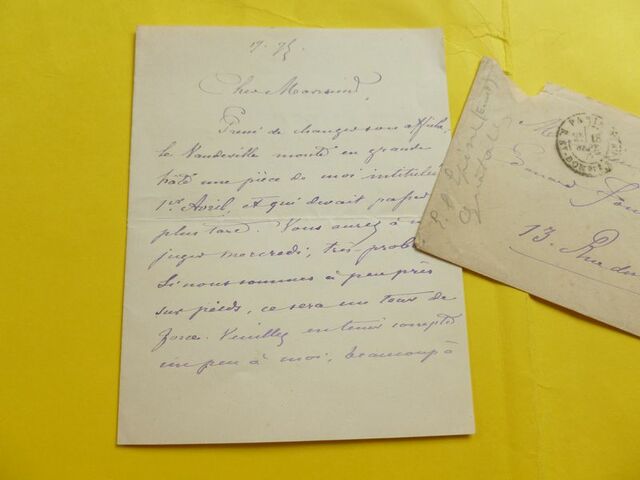 17. 75.
Cher Monsieur,
Pressé de changer son affiche,
le Vaudeville monte en grande
hâte une pièce de moi intitulée
1er Avril, et qui devait passer
plus tard. Vous aurez à
juger mercredi, très prob
Si nous sommes à peu près
sur pieds, ce sera un tour de
force. Veuillez en tenir compte
un peu à moi, beaucoup à
PARIS
(Ernest)
13. Rue de